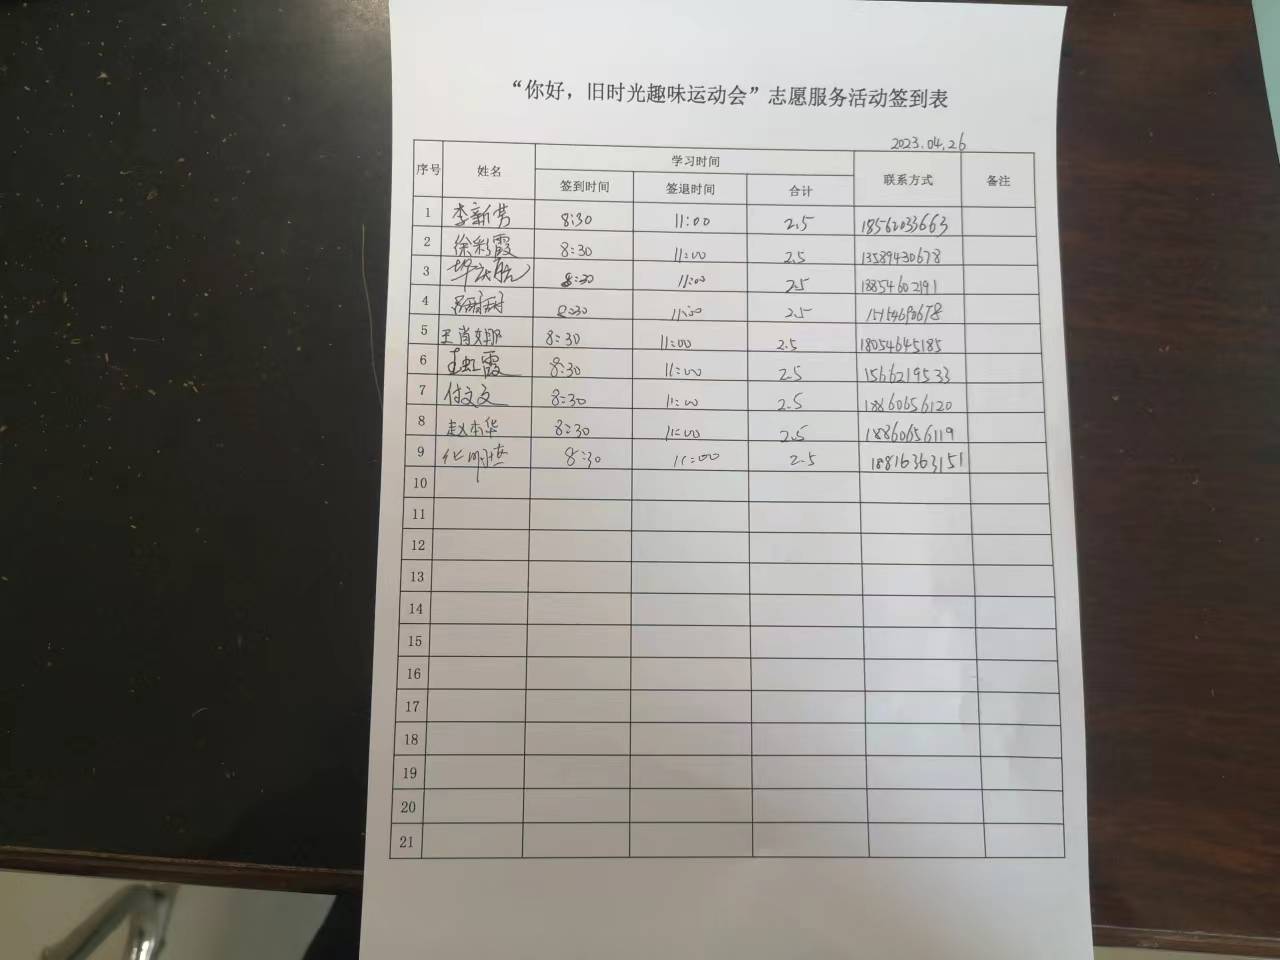 “你好，旧时光趣味运动会”志愿服务活动签到表
2023.04.26
序号 姓名 学习时间 联系方式 备注
签到时间 签退时间 合计
1 李新芳 8:30 11:00 2.5 18562033663
2 徐彩霞 8:30 11:00 2.5 13589430678
3 8:30 11:00 2.5 18854602191
4 8:30 11:00 2.5 15154690678
5 王肖娜 8:30 11:00 2.5 18054645185
6 王虹霞 8:30 11:00 2.5 1566219533
7 付文文 8:30 11:00 2.5 18860656120
8 赵本华 8:30 11:00 2.5 18860656119
9 8:30 11:00 2.5 18816363151
10
11
12
13
14
15
16
17
18
19
20
21